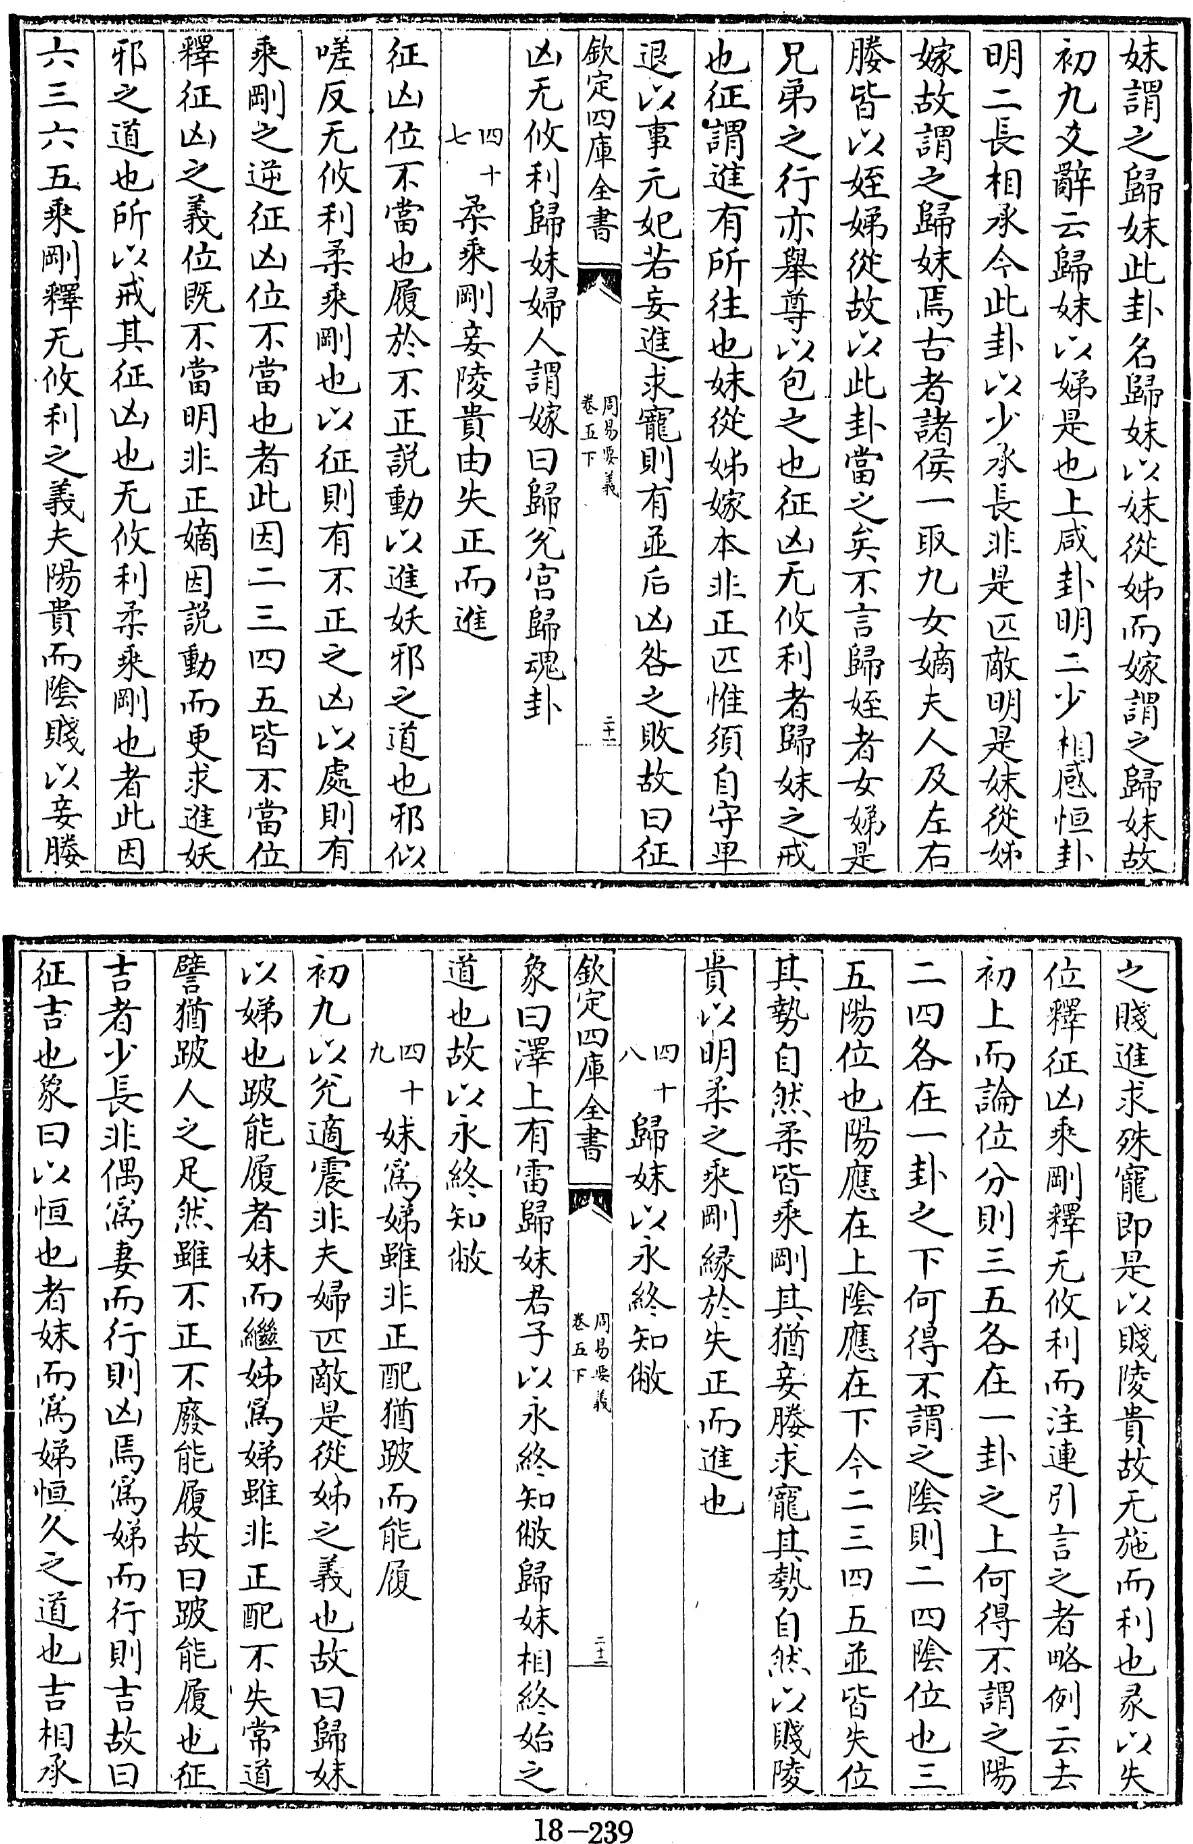 妹謂之歸妹此卦名歸妹以妹從姊而嫁謂之歸妹故
初九爻辭云歸妹以娣是也上咸卦明二少相感恒卦
明二長相承今此卦以少承長非是匹敵明是妹從姊
嫁故謂之歸妹焉古者諸侯一取九女嫡夫人及左右
媵皆以姪娣從故以此卦當之矣不言歸姪者女娣是
兄弟之行亦舉尊以包之也征凶无攸利者歸妹之戒
也征謂進有所往也妹從姊嫁本非正匹惟須自守卑
退以事元妃若妄進求寵則有並后凶咎之敗故曰征
欽定四庫全書
周易要義
卷五下
二十一
凶无攸利歸妹婦人謂嫁曰歸兊宫歸魂卦
四十七
柔乘剛妾陵貴由失正而進
征凶位不當也履於不正説動以進妖邪之道也邪似
嗟反无攸利柔乘剛也以征則有不正之凶以處則有
乘剛之逆征凶位不當也者此因二三四五皆不當位
釋征凶之義位既不當明非正嫡因説動而更求進妖
邪之道也所以戒其征凶也无攸利柔乘剛也者此因
六三六五乘剛釋无攸利之義夫陽貴而陰賤以妾媵
之賤進求殊寵即是以賤陵貴故无施而利也彖以失
位釋征凶乘剛釋无攸利而注連引言之者略例云去
初上而論位分則三五各在一卦之上何得不謂之陽
二四各在一卦之下何得不謂之陰則二四陰位也三
五陽位也陽應在上陰應在下今二三四五並皆失位
其勢自然柔皆乘剛其猶妾媵求寵其勢自然以賤陵
貴以明柔之乘剛緣於失正而進也
四十八
歸妹以永終知敝
欽定四庫全書
周易要義
卷五下
二十二
象曰澤上有雷歸妹君子以永終知敝歸妹相終始之
道也故以永終知敝
四十九
妹為娣雖非正配猶跛而能履
初九以兊適震非夫婦匹敵是從姊之義也故曰歸妹
以娣也跛能履者妹而繼姊為娣雖非正配不失常道
譬猶跛人之足然雖不正不廢能履故曰跛能履也征
吉者少長非偶為妻而行則凶焉為娣而行則吉故曰
征吉也象曰以恒也者妹而為娣恒久之道也吉相承
18-239